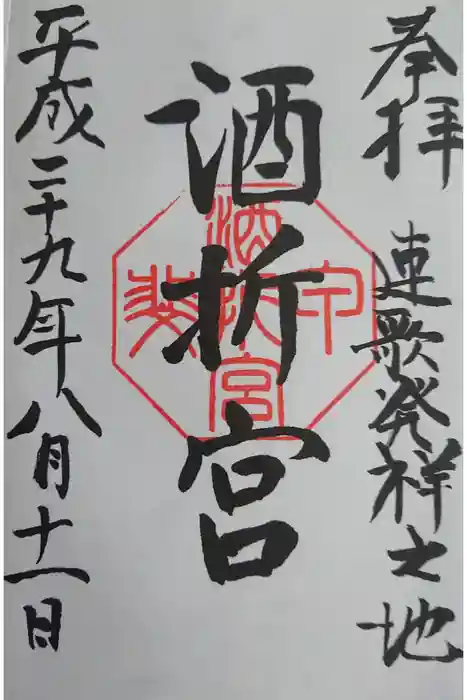 奉拝 連歌発祥之地
酒折宮
酒折宮
平成二十九年八月十一日